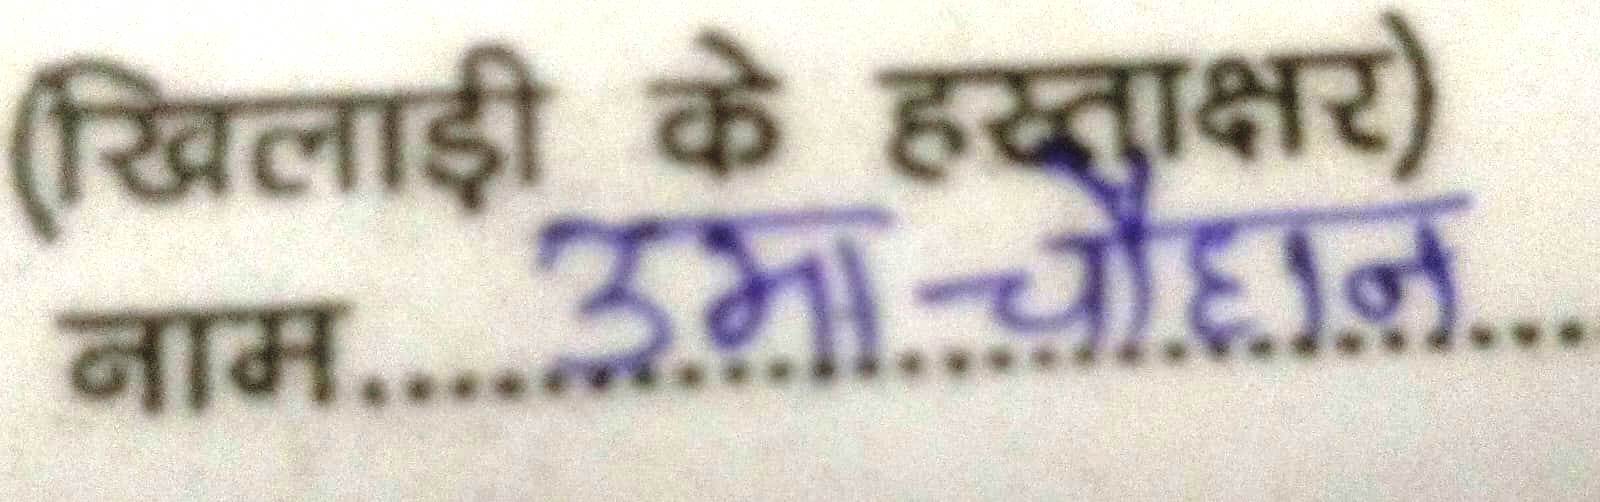 (खिलाड़ी के हस्ताक्षर)
नाम.......उमा चौहान.......